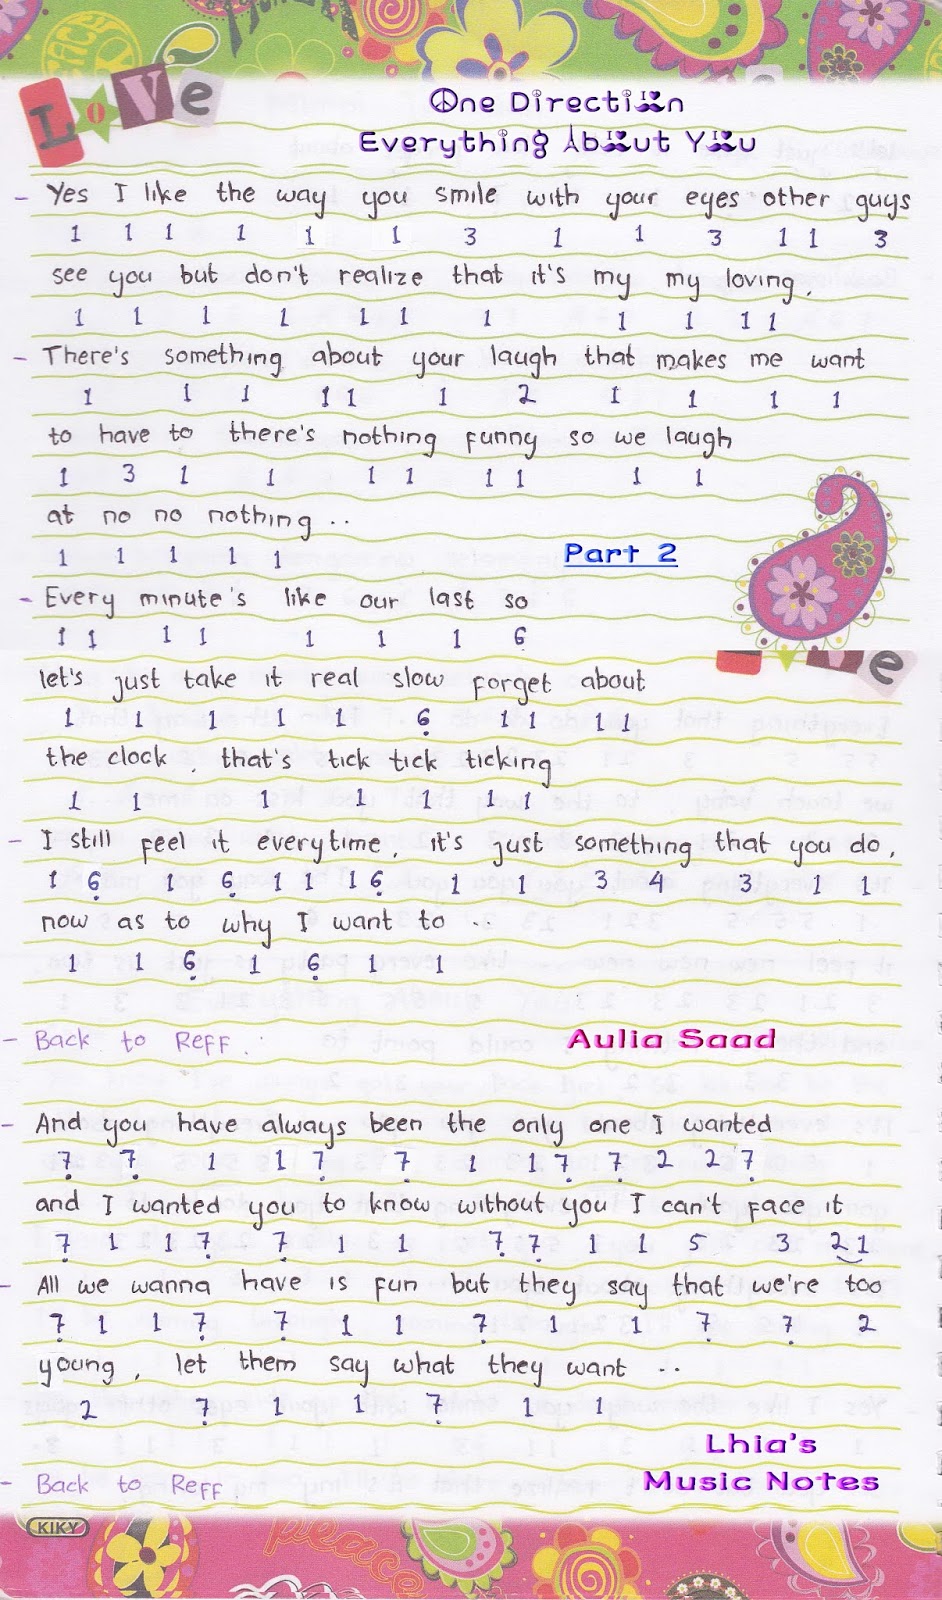 Love
One Direction
Everything About You
- Yes I like the way you smile with your eyes other guys
1 1 1 1 1 1 3 1 1 3 1 1 3
see you but don't realize that it's my my loving.
1 1 1 1 1 1 1 1 1 1 1
- There's something about your laugh that makes me want
1 1 1 1 1 1 2 1 1 1 1
to have to there's nothing funny so we laugh
1 3 1 1 1 1 1 1 1 1
at no no nothing ..
1 1 1 1 1
Part 2
- Every minute's like our last so
1 1 1 1 1 1 1 6
let's just take it real slow forget about
1 1 1 1 1 6̣ 1 1 1 1
the clock, that's tick tick ticking
1 1 1 1 1 1 1
- I still feel it everytime, it's just something that you do,
1 6̣ 1 6̣ 1 1 1 6̣ 1 1 3 4 3 1 1
now as to why I want to ..
1 1 6̣ 1 6̣ 1 1
- Back to Reff.
Aulia Saad
- And you have always been the only one I wanted
7̣ 7̣ 1 1 7̣ 7̣ 1 1 7̣ 7̣ 2 2 7̣
and I wanted you to know without you I can't face it
7̣ 1 1 7̣ 7̣ 1 1 7̣ 7̣ 1 1 5 3 2 1
- All we wanna have is fun but they say that we're too
7̣ 1 1 7̣ 7̣ 1 1 7̣ 1 1 7̣ 7̣ 2
young, let them say what they want ..
2 7̣ 1 1 7̣ 1 1
Lhia's
Music Notes
- Back to Reff.
KIKY
peace